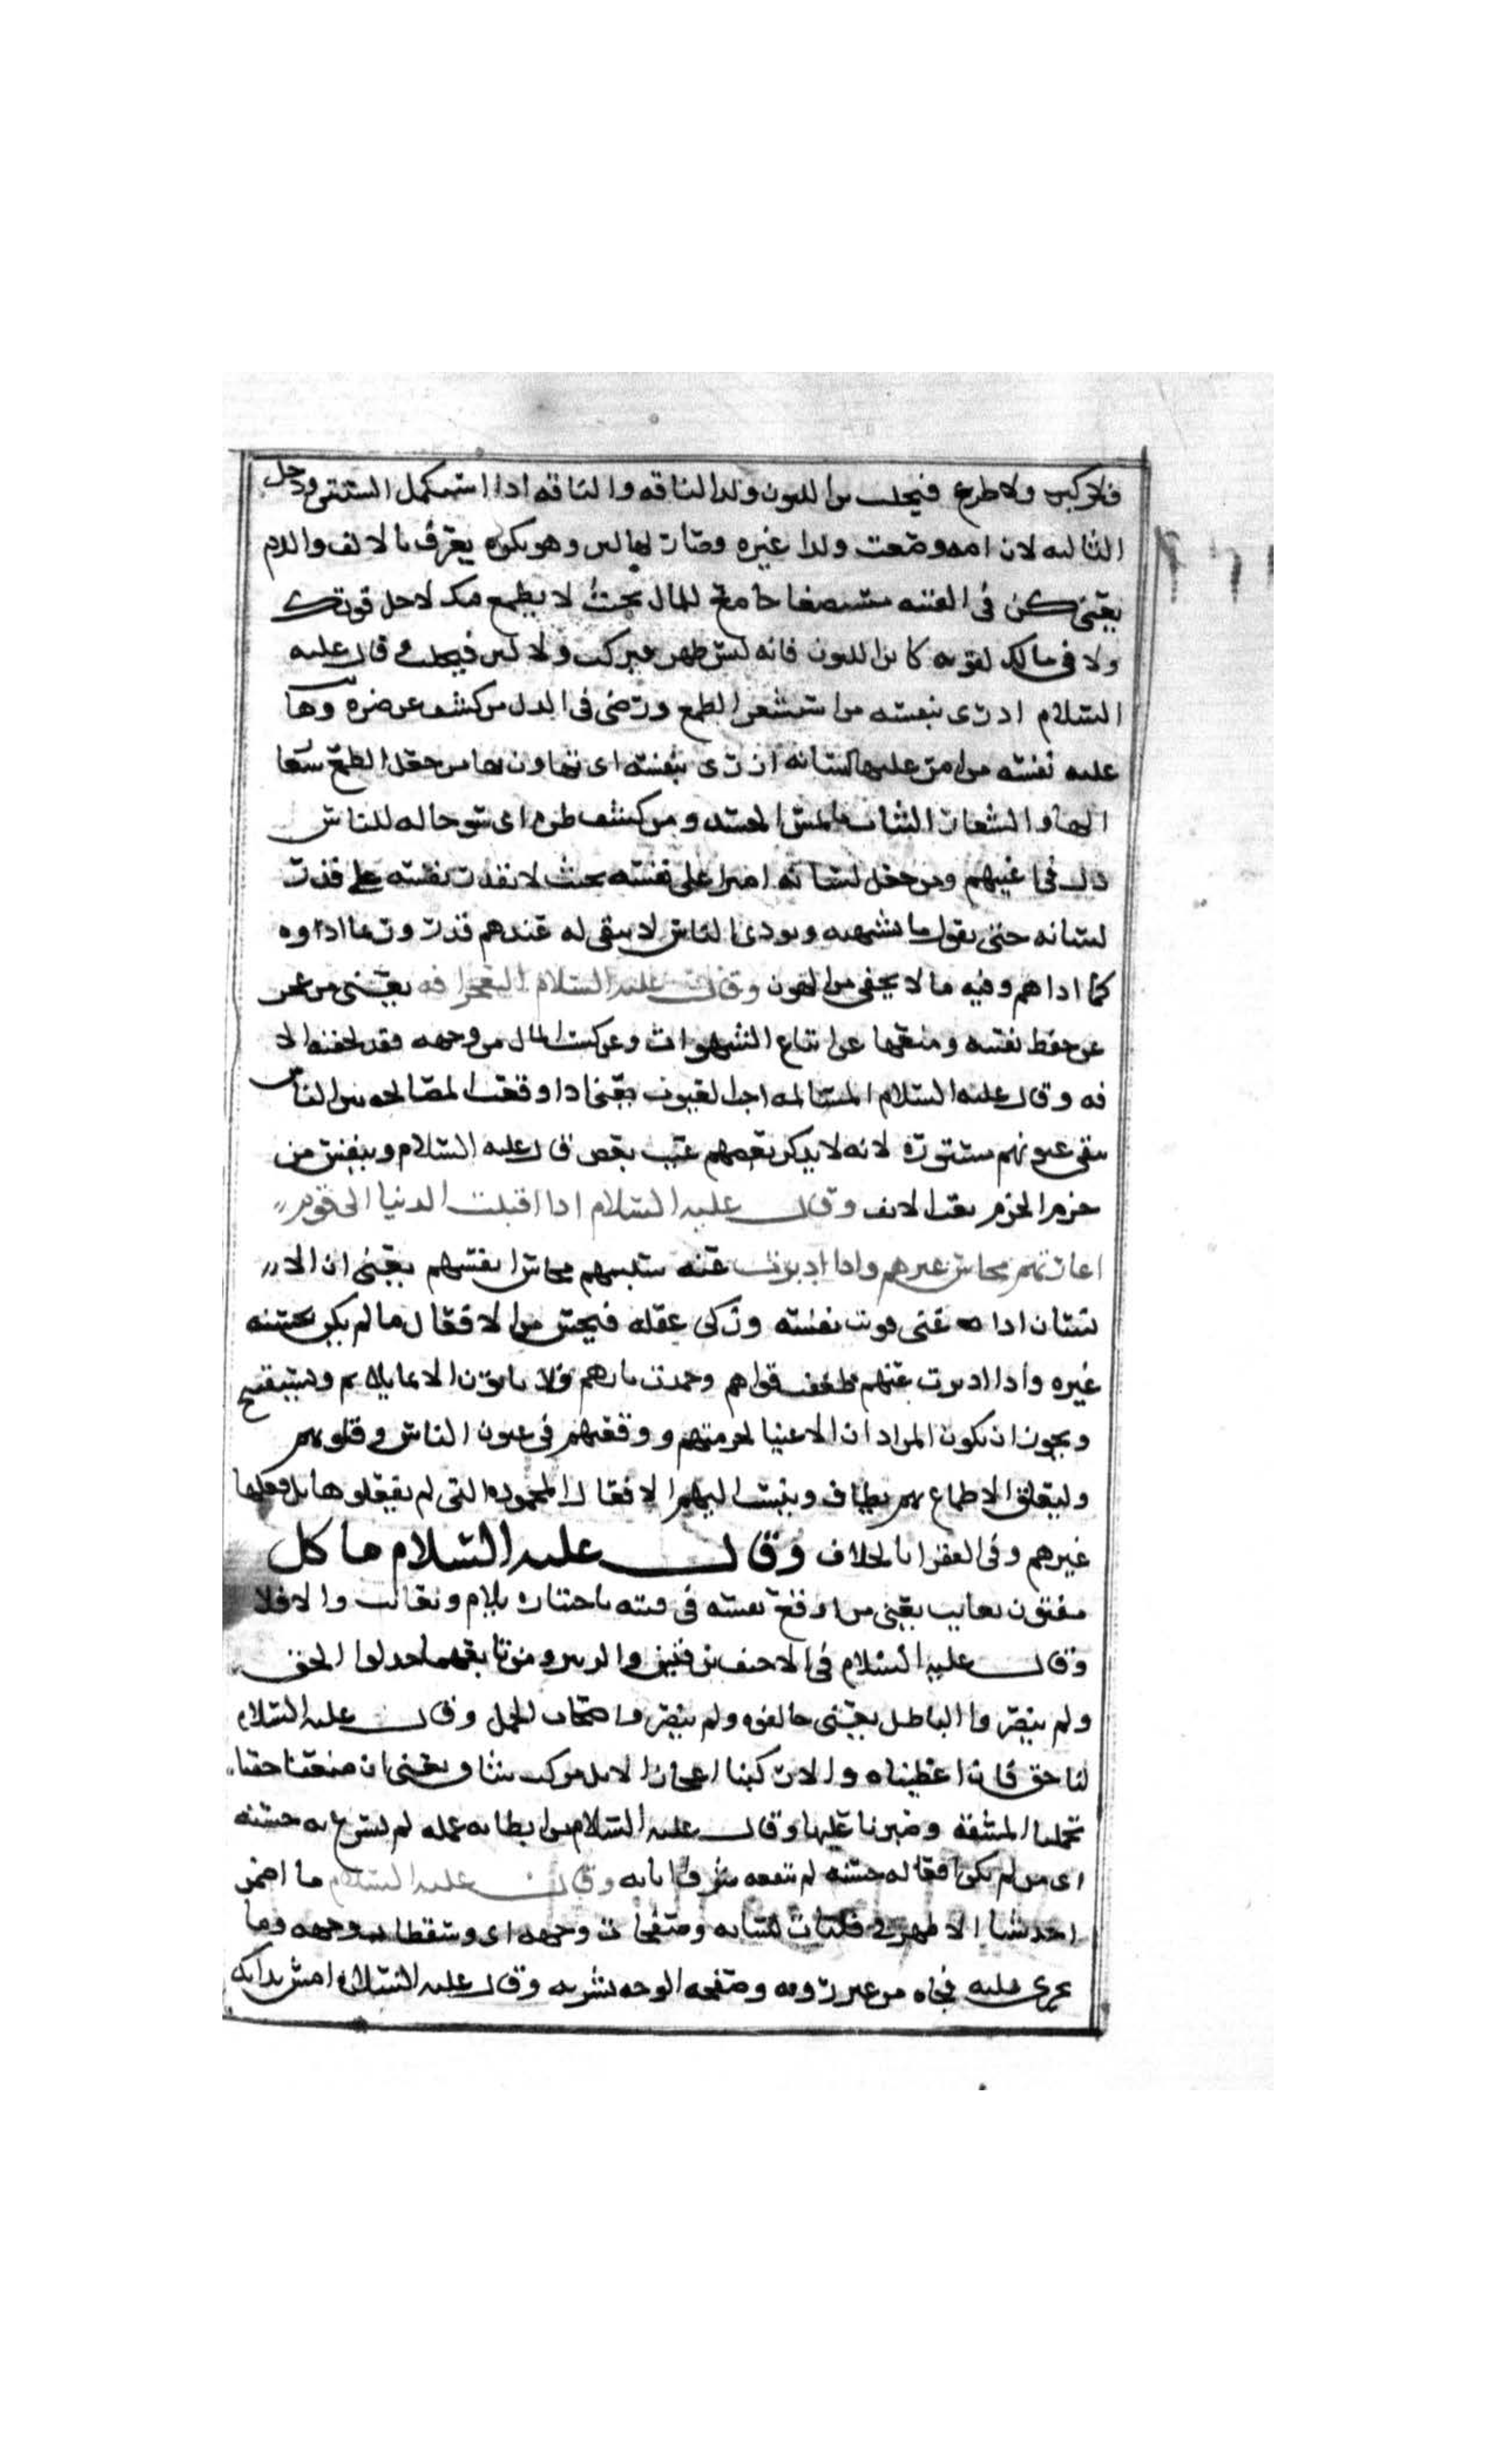 فيركب ولا ضرع فيحلب ابن اللبون ولد الناقه والناقه اذا استكمل السنتين ودخل
الثالثه لان امه وضعت ولدا غيره وصار لها لبن وهو نكره يعرف بالالف واللام
يعني كن في الفتنه جامع للمال بحيث لا يطمع فيك لاجل قوتك
ولا في مالك لقوته كابن اللبون فانه ليس ظهر فيركب ولا لبن فيحلب وقال عليه
السلام ازرى بنفسه من استشعر الطمع ورضي في الذل من كشف عن ضره وهان
عليه نفسه من امر عليها لسانه ازرى بنفسه اى تهاون بها من جعل الطمع شعا
الها والشعار الثياب تلمس الجسد ومن كشف ضره اى سو حاله للناس
ذلك في اعينهم ومن جعل لسانه اميرا على نفسه بحيث لا تقدر نفسه على قدرت
لسانه حتى يقول ما يشتهيه ويوذي الناس لا يبقى له عندهم قدر وربما اذاوه
كما اذاهم وفيه ما لا يخفى من الهون وقال عليه السلام العجز افه يعني من عجز
عن حفظ نفسه ومنعها عن اتباع الشهوات وعن كسب المال من وجهه فقد لحقته الا
فه وقال عليه السلام المسالمه اخبا العيوب يعني اذا وقعت المصالحه بين الناس
تبقى عيوبهم مستوره لانه لا يذكر بعضهم عيب بعض قال عليه السلام
حزم الحزم وقال عليه السلام اذا اقبلت الدنيا الى قوم
اعارتهم محاسن غيرهم واذا ادبرت عنه سلبتهم محاسن انفسهم يعني ان الا
نسان اذا غنى قويت نفسه وزكى عقله فيحسن من الافعال ما لم يكن يحسنه
غيره واذا ادبرت عنهم ضعف قواهم وخمدت نارهم فلا ياتون الا بما يلام ويستقبح
ويجوز ان يكون المراد ان الاغنيا لحرمتهم ووقعهم في عيون الناس وقلوبهم
وليتعلق الاطماع بهم يضاف وينسب اليهم الافعال المحموده التي لم يفعلوها بل فعلها
غيرهم وفي الفقرا بالخلاف وقال عليه السلام ما كل
مفتون يعاتب يعني من اوقع نفسه في فتنه باختياره يلام ويعاتب والا فلا
وقال عليه السلام في الاحنف بن قيس والزبير ومن تابعهما خذلوا الحق
ولم ينصروا الباطل يعني خالفوه ولم ينصروا اصحاب الجمل وقال عليه السلام
لنا حق فان اعطيناه والا ركبنا اعجاز الابل يعني ان منعنا حقنا
تحملنا المشقه وصبرنا عليها وقال عليه السلام من ابطا به عمله لم يسرع به حسبه
اى من لم يكن افعاله حسنه لم تنفعه شرف ابايه وقال عليه السلام ما اضمر
احد شيا الا ظهر في فلتات لسانه وصفحات وجهه اى وسقطات وجهه وما
يجرى عليه فجاه من غير رويه وصفحه الوجه بشرته وقال عليه السلام امش بدايك